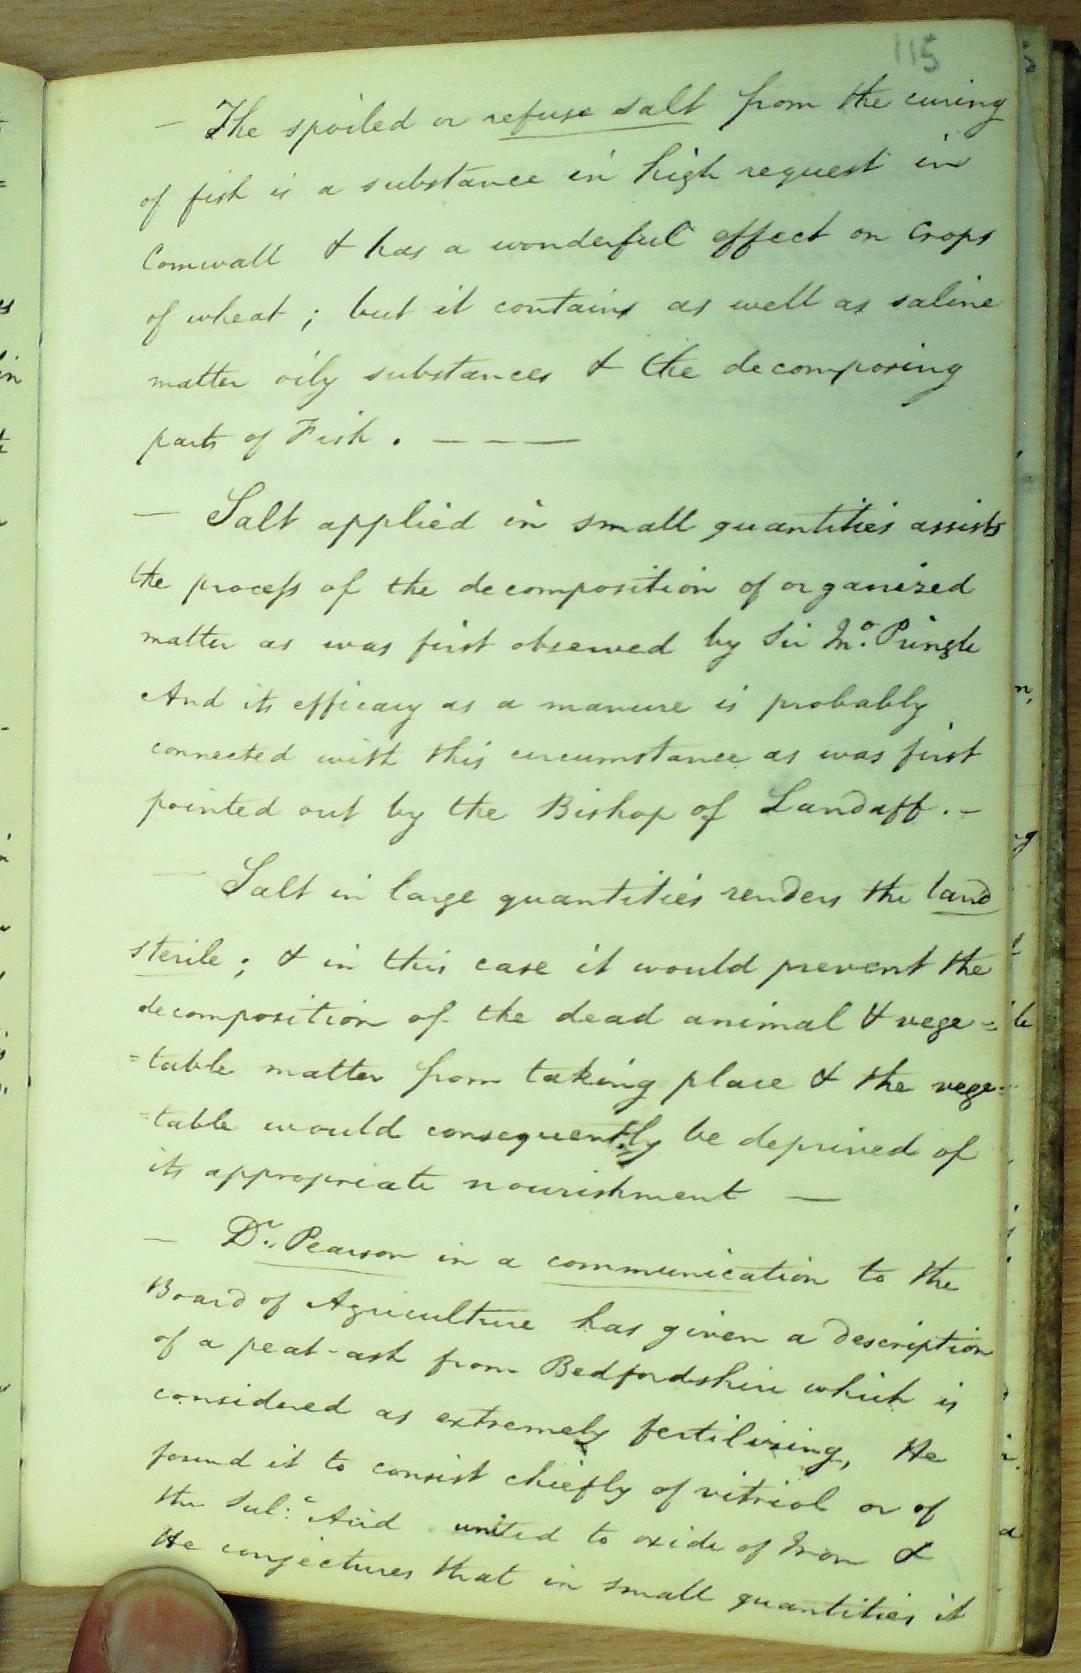 115
— The spoiled or refuse salt from the curing
of fish is a substance in high request in
Cornwall & has a wonderful effect on Crops
of wheat ; but it contains as well as saline
matter oily substances & the decomposing
parts of Fish . — — —
— Salt applied in small quantities assists
the process of the decomposition of organized
matter as was first observed by Sir Jno. Pringle
And its efficacy as a manure is probably
connected with this circumstance as was first
pointed out by the Bishop of Landaff . –
— Salt in large quantities renders the land
sterile ; & in this case it would prevent the
decomposition of the dead animal & vege =
=table matter from taking place & the vege=
=table would consequently be deprived of
its appropriate nourishment —
— Dr. Pearson in a communication to the
Board of Agriculture has given a description
of a peat-ash from Bedfordshire which is
considered as extremely fertilizing, He
found it to consist chiefly of vitriol or of
the Sul:c Acid united to oxide of Iron &
He conjectures that in small quantities it